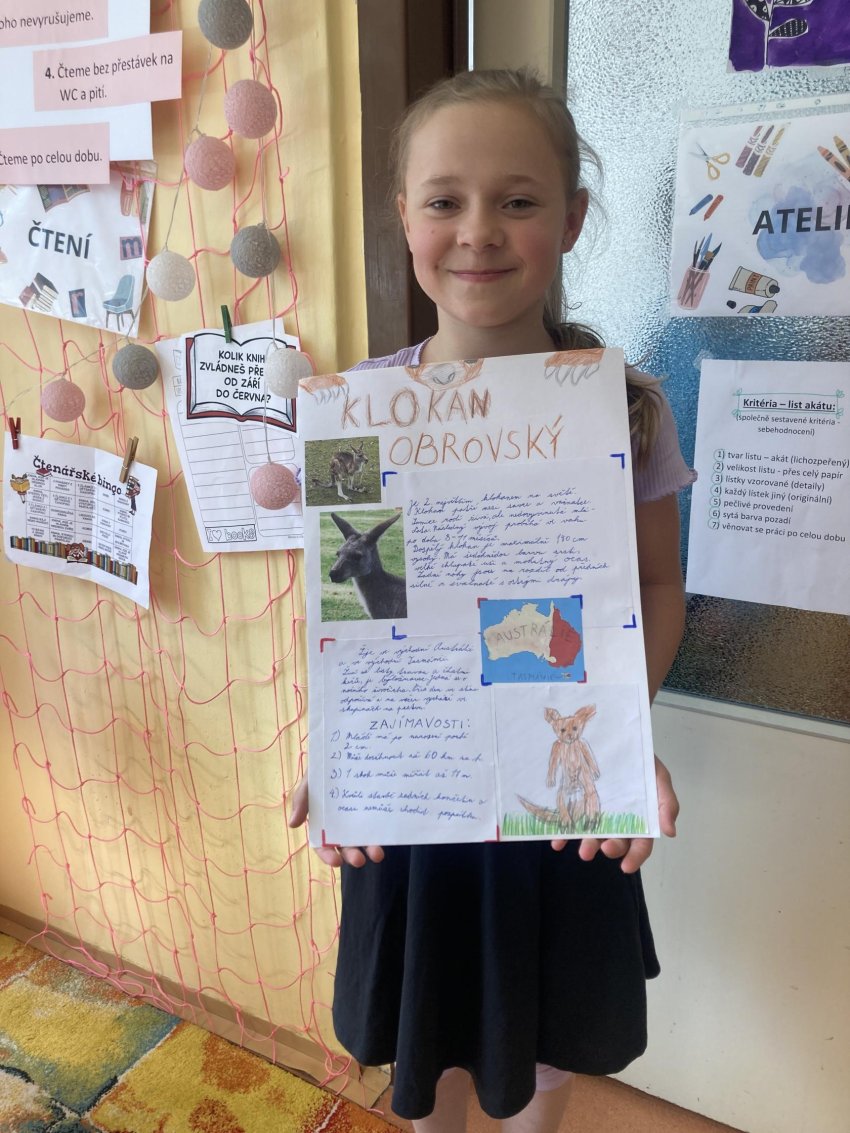 oho nevyrušujeme.
4. Čteme bez přestávek na
WC a pití.
Čteme po celou dobu.
ČTENÍ
KOLIK KNIH
ZVLÁDNEŠ PŘE
OD ZÁŘÍ
DO ČERVNA?
I books
Čtenářské bingo
ATELI
Kritéria – list akátu:
(společně sestavené kritéria -
sebehodnocení)
1) tvar listu – akát (lichozpeřený)
2) velikost listu - přes celý papír
3) lístky vzorované (detaily)
4) každý lístek jiný (originální)
5) pečlivé provedení
6) sytá barva pozadí
7) věnovat se práci po celou dobu
KLOKAN
OBROVSKÝ
Je 2. největším klokanem na světě.
Klokani patří mezi savce a vačnatce.
Samice rodí živá, ale nedovyvinutá mlá-
ďata. Následný vývoj probíhá ve vaku
po dobu 8-11 měsíců.
Dospělý klokan je maximálně 190 cm
vysoký. Má šedohnědou barvu srsti,
velké chlupaté uši a mohutný ocas.
Zadní nohy jsou na rozdíl od předních
silné a svalnaté s ostrými drápy.
AUSTRÁLIE
TASMÁNIE
Žije ve východní Austrálii
a ve východní Tasmánii.
Živí se listy travou a
keřů, je býložravec. Jedná se o
nočního živočicha. Přes den ve stínu
odpočívá a na večer vychází ve
skupinách na pastvu.
ZAJÍMAVOSTI:
1) Mládě má po narození pouze
2 cm.
2) Může dosáhnout až 60 km na h.
3) 1 skok může měřit až 11 m.
4) Kvůli stavbě zadních končetin a
ocasu nemůže chodit pozpátku.